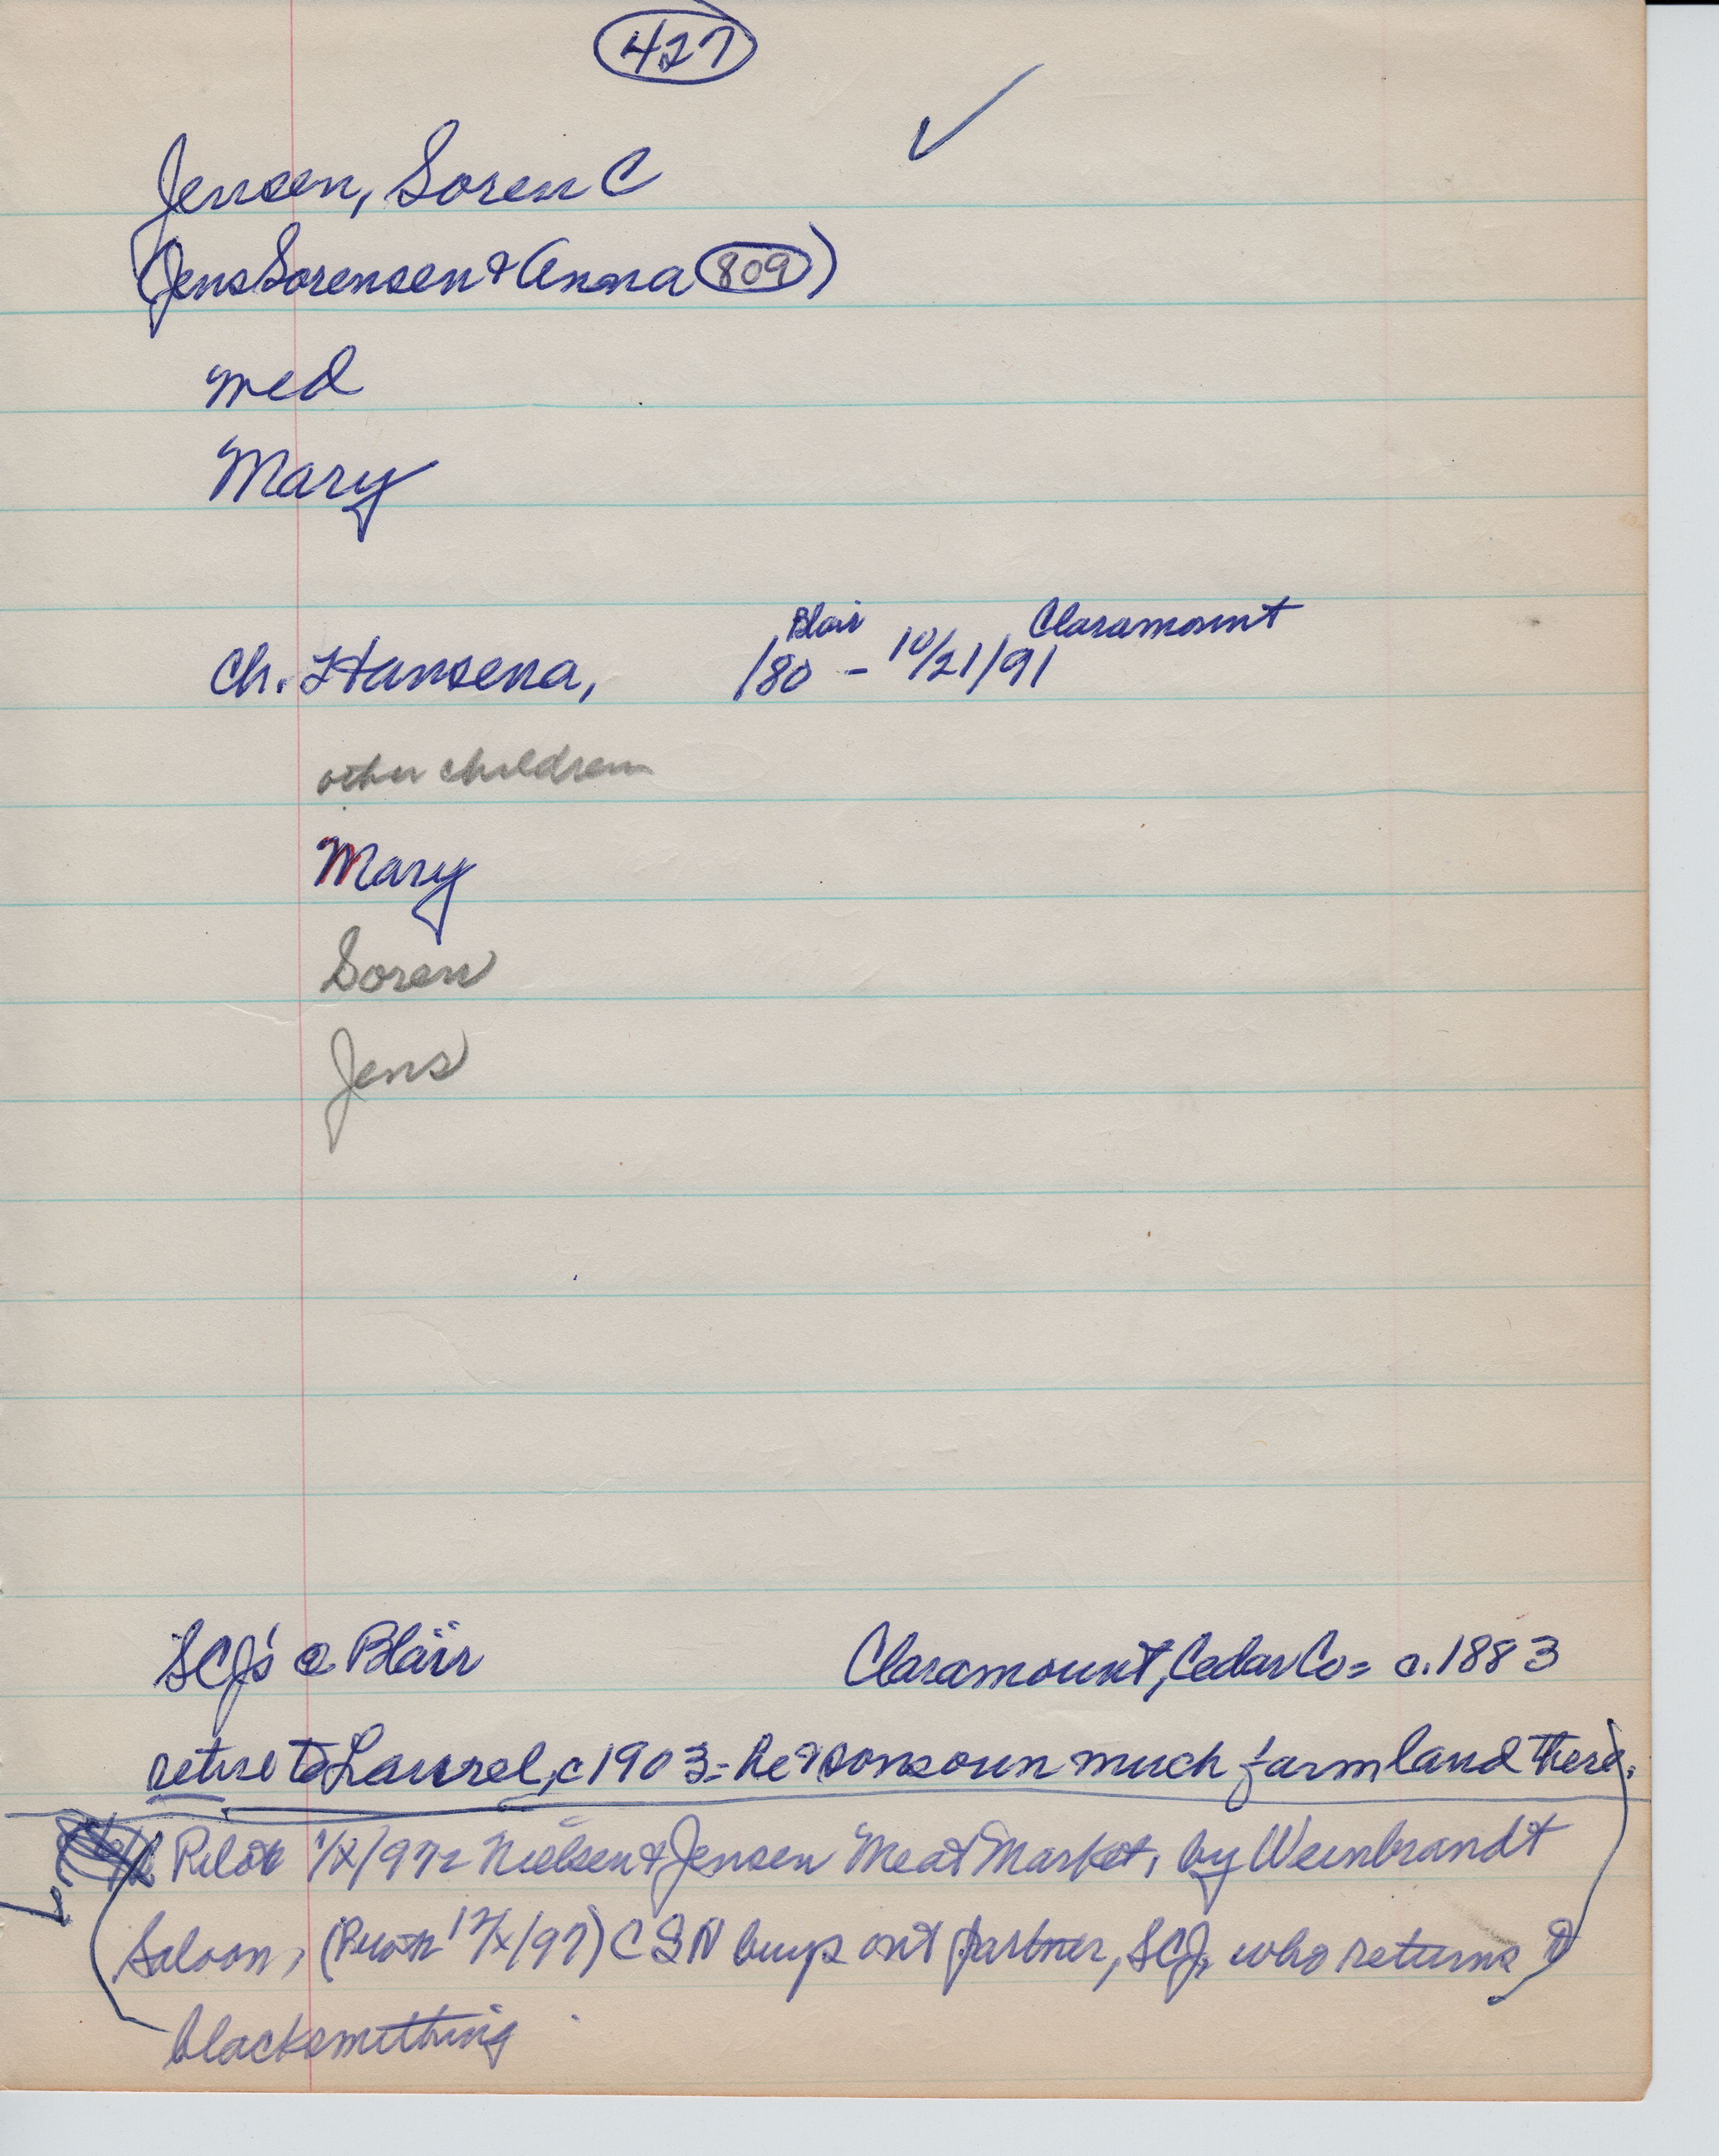 427
✓
Jensen, Soren C
(Jens Sorensen & Anna 809)
med
Mary
Blair Claramount
Ch. Hansena, /80 - 10/21/91
other children
Mary
Soren
Jens
SCJ's @ Blair Claramount, Cedar Co = c. 1883
retire to Laurel, c 1903 = he & sons own much farmland there.
Pilot 1/X/97 = Nielsen & Jensen Meat Market, by Weinbrandt
Saloon, (Pilot 12/X/97) CSN buys out partner, SCJ, who returns to
blacksmithing